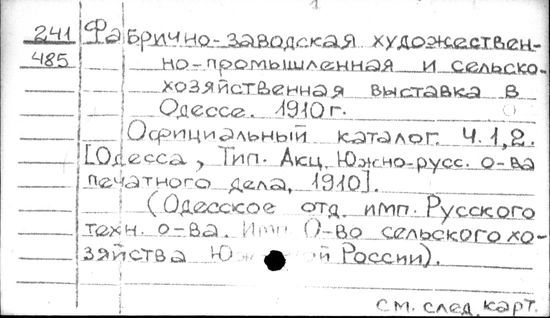 1
241 Фабрично-заводская художествен-
485 но-промышленная и сельско-
хозяйственная выставка в
Одессе. 1910 г.
Официальный каталог. Ч. 1, 2.
[Одесса, Тип. Акц. Южно-русс. о-ва
печатного дела, 1910].
(Одесское отд. имп. Русского
техн. о-ва. Имп. О-во сельского хо-
зяйства России).
см. след. карт.